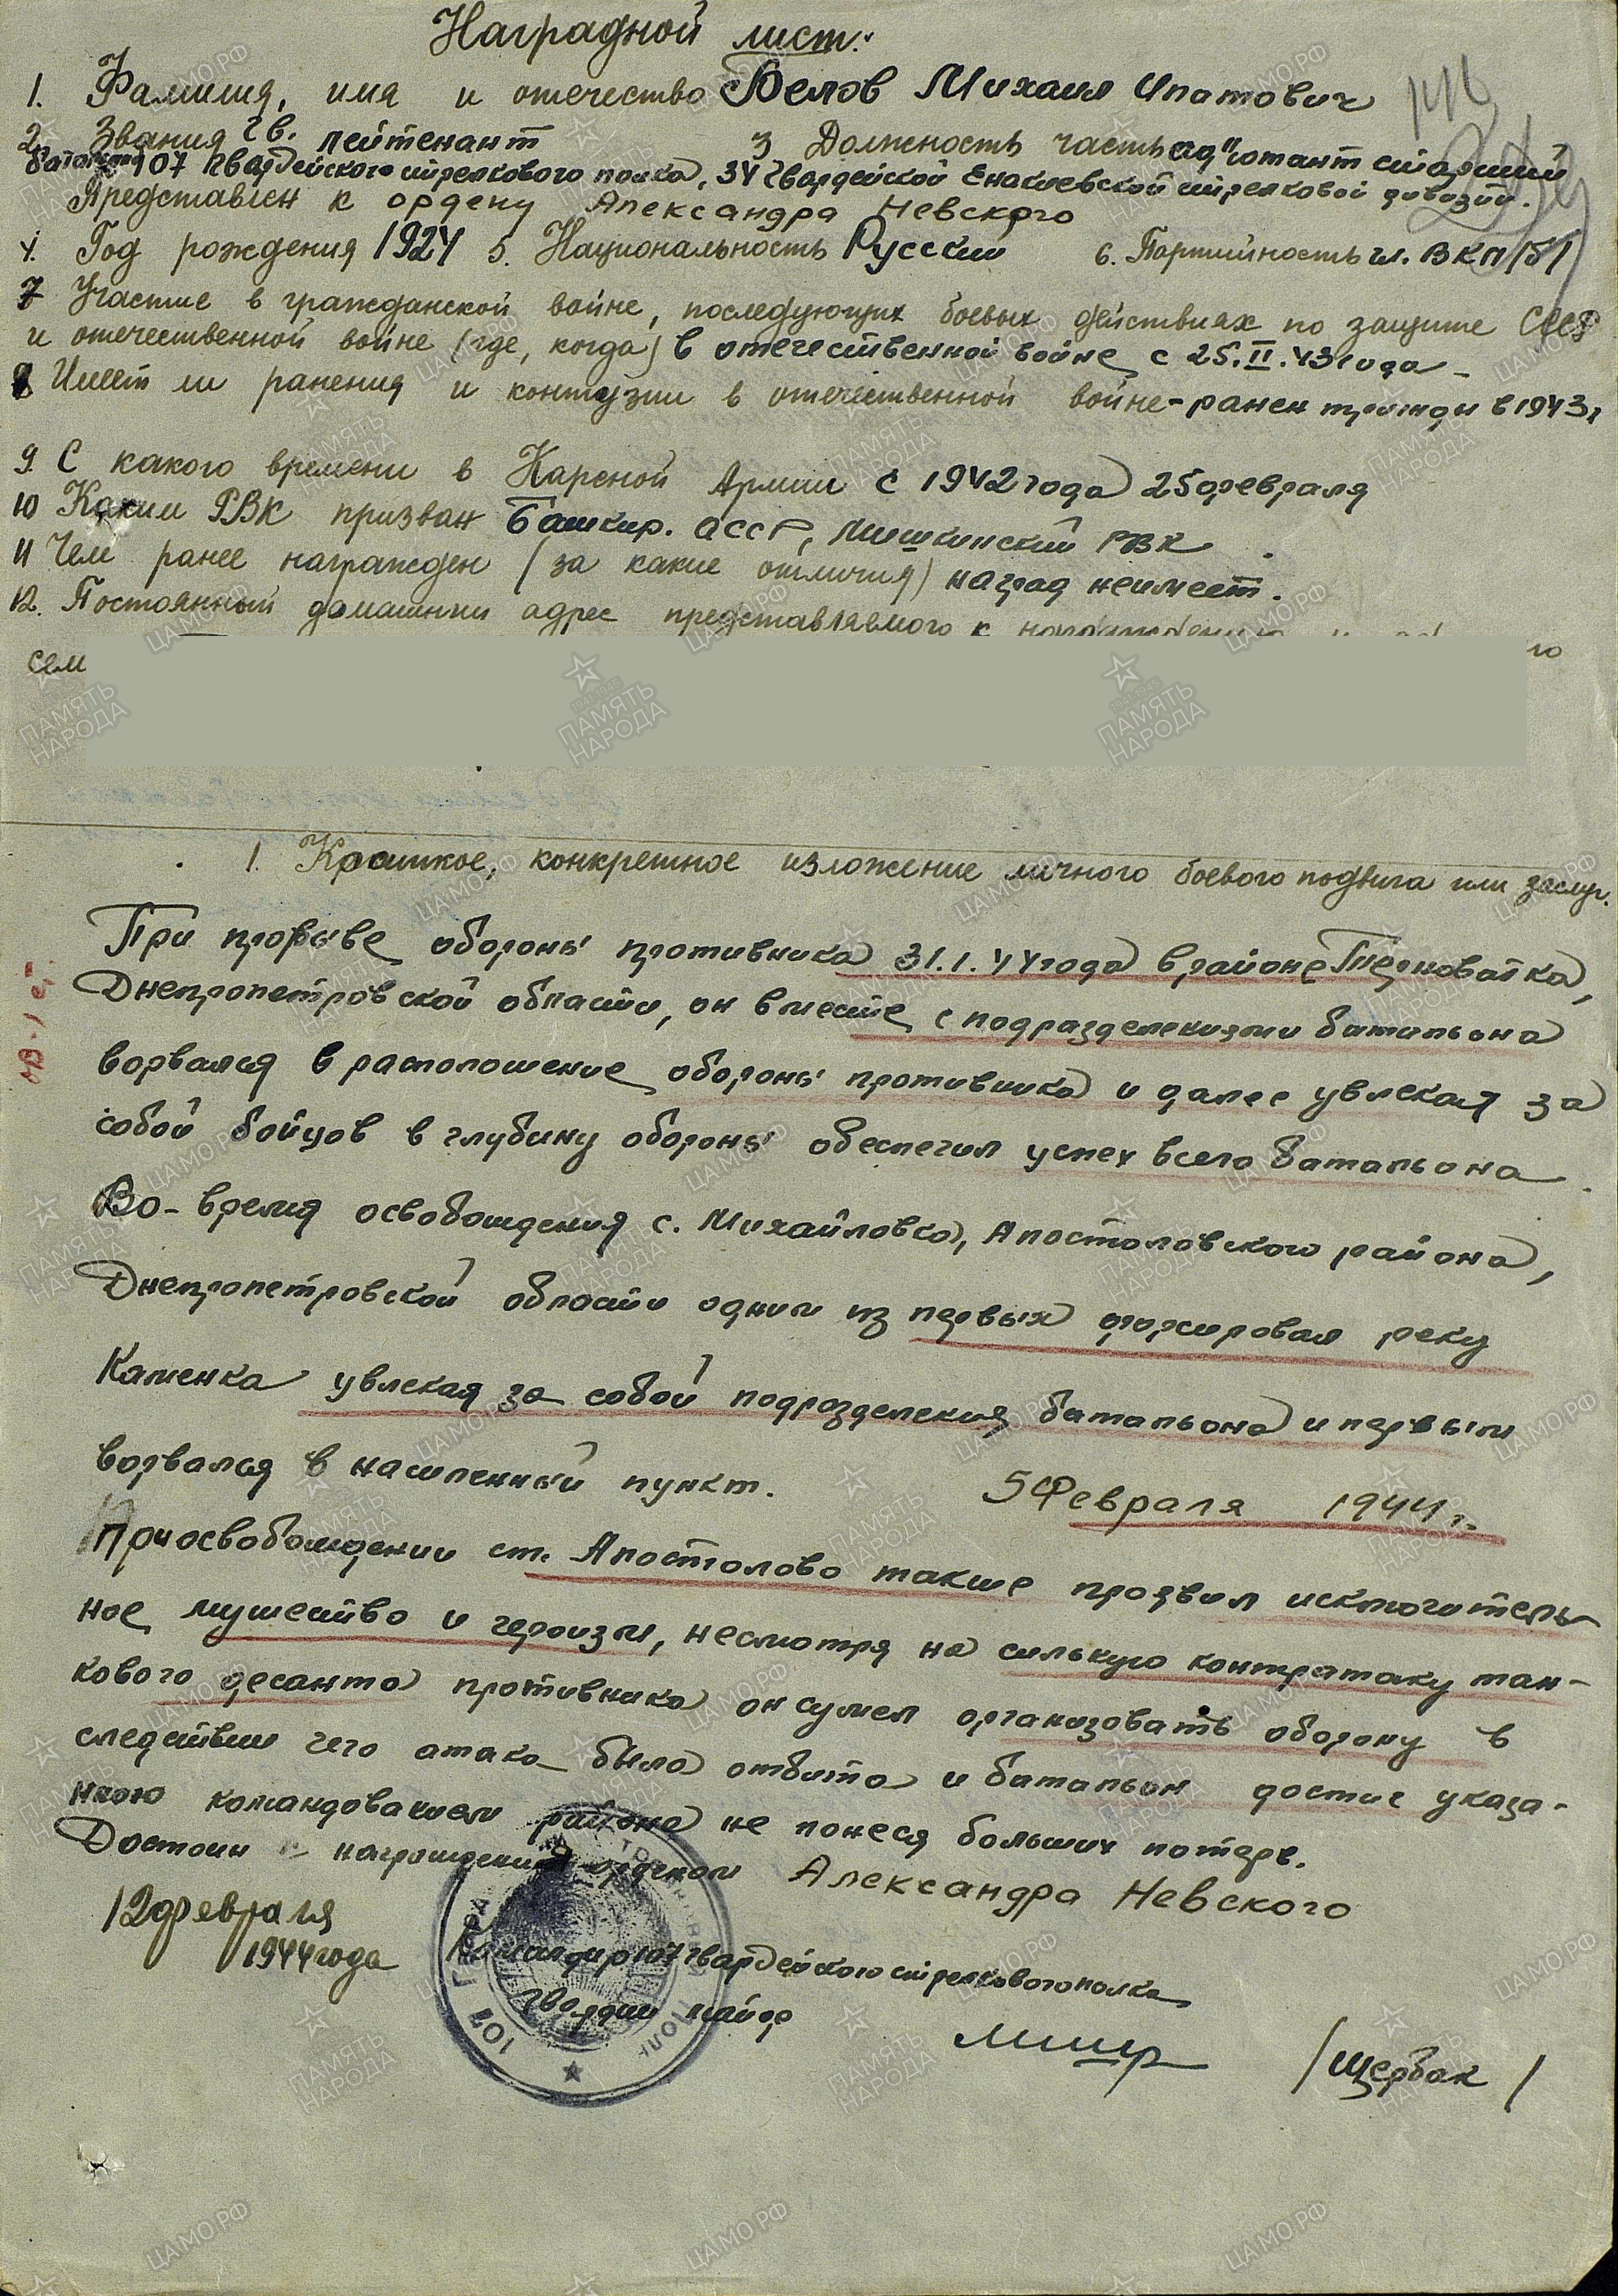 Наградной лист.
1. Фамилия, имя и отечество Белов Михаил Ипатович
2. Звания гв. лейтенант 3 Должность часть ад"ютант старший
батальона 107 гвардейского стрелкового полка, 34 гвардейской Енакиевской стрелковой дивизии.
Представлен к ордену Александра Невского
4. Год рождения 1924 5. Национальность Русский 6. Партийность чл. ВКП/б/
7 Участие в гражданской войне, последующих боевых действиях по защите СССР
и отечественной войне (где, когда) в отечественной войне с 25.II.43 года
8 Имеет ли ранения и контузии в отечественной войне - ранен трижды в 1943 г
9. С какого времени в Карсной Армии с 1942 года 25 февраля
10 Каким РВК призван Башкир. АССР, Мишкинский РВК.
11 Чем ранее награжден (за какие отличия) наград неимеет.
12. Постоянный домашний адрес представляемого к
сем
1. Краткое, конкретное изложение личного боевого подвига или заслуг.
При прорыве обороны противника 31.1.44 года в районе Терноватка,
Днепропетровской области, он вместе с подразделениями батальона
ворвался в расположение обороны противника и далее увлекая за
собой бойцов в глубину обороны обеспечил успех всего батальона.
Во-время освобождения с. Михайловка, Апостоловского района,
Днепропетровской области одним из первых форсировал реку
Каменка увлекая за собой подразделения батальона и первым
ворвался в населенный пункт. 5 Февраля 1944 г.
При освобождении ст. Апостолово также проявил исключитель-
ное мужество и героизм, несмотря на сильную контратаку тан-
кового десанта противника он сумел организовать оборону в
следствии чего атака была отбита и батальон достиг указа-
ного командованием района не понеся больших потерь.
Достоин к награждению орденом Александра Невского
12 февраля
1944 года
Командир 107 гвардейского стрелкового полка
гвардии майор
/Щербак/